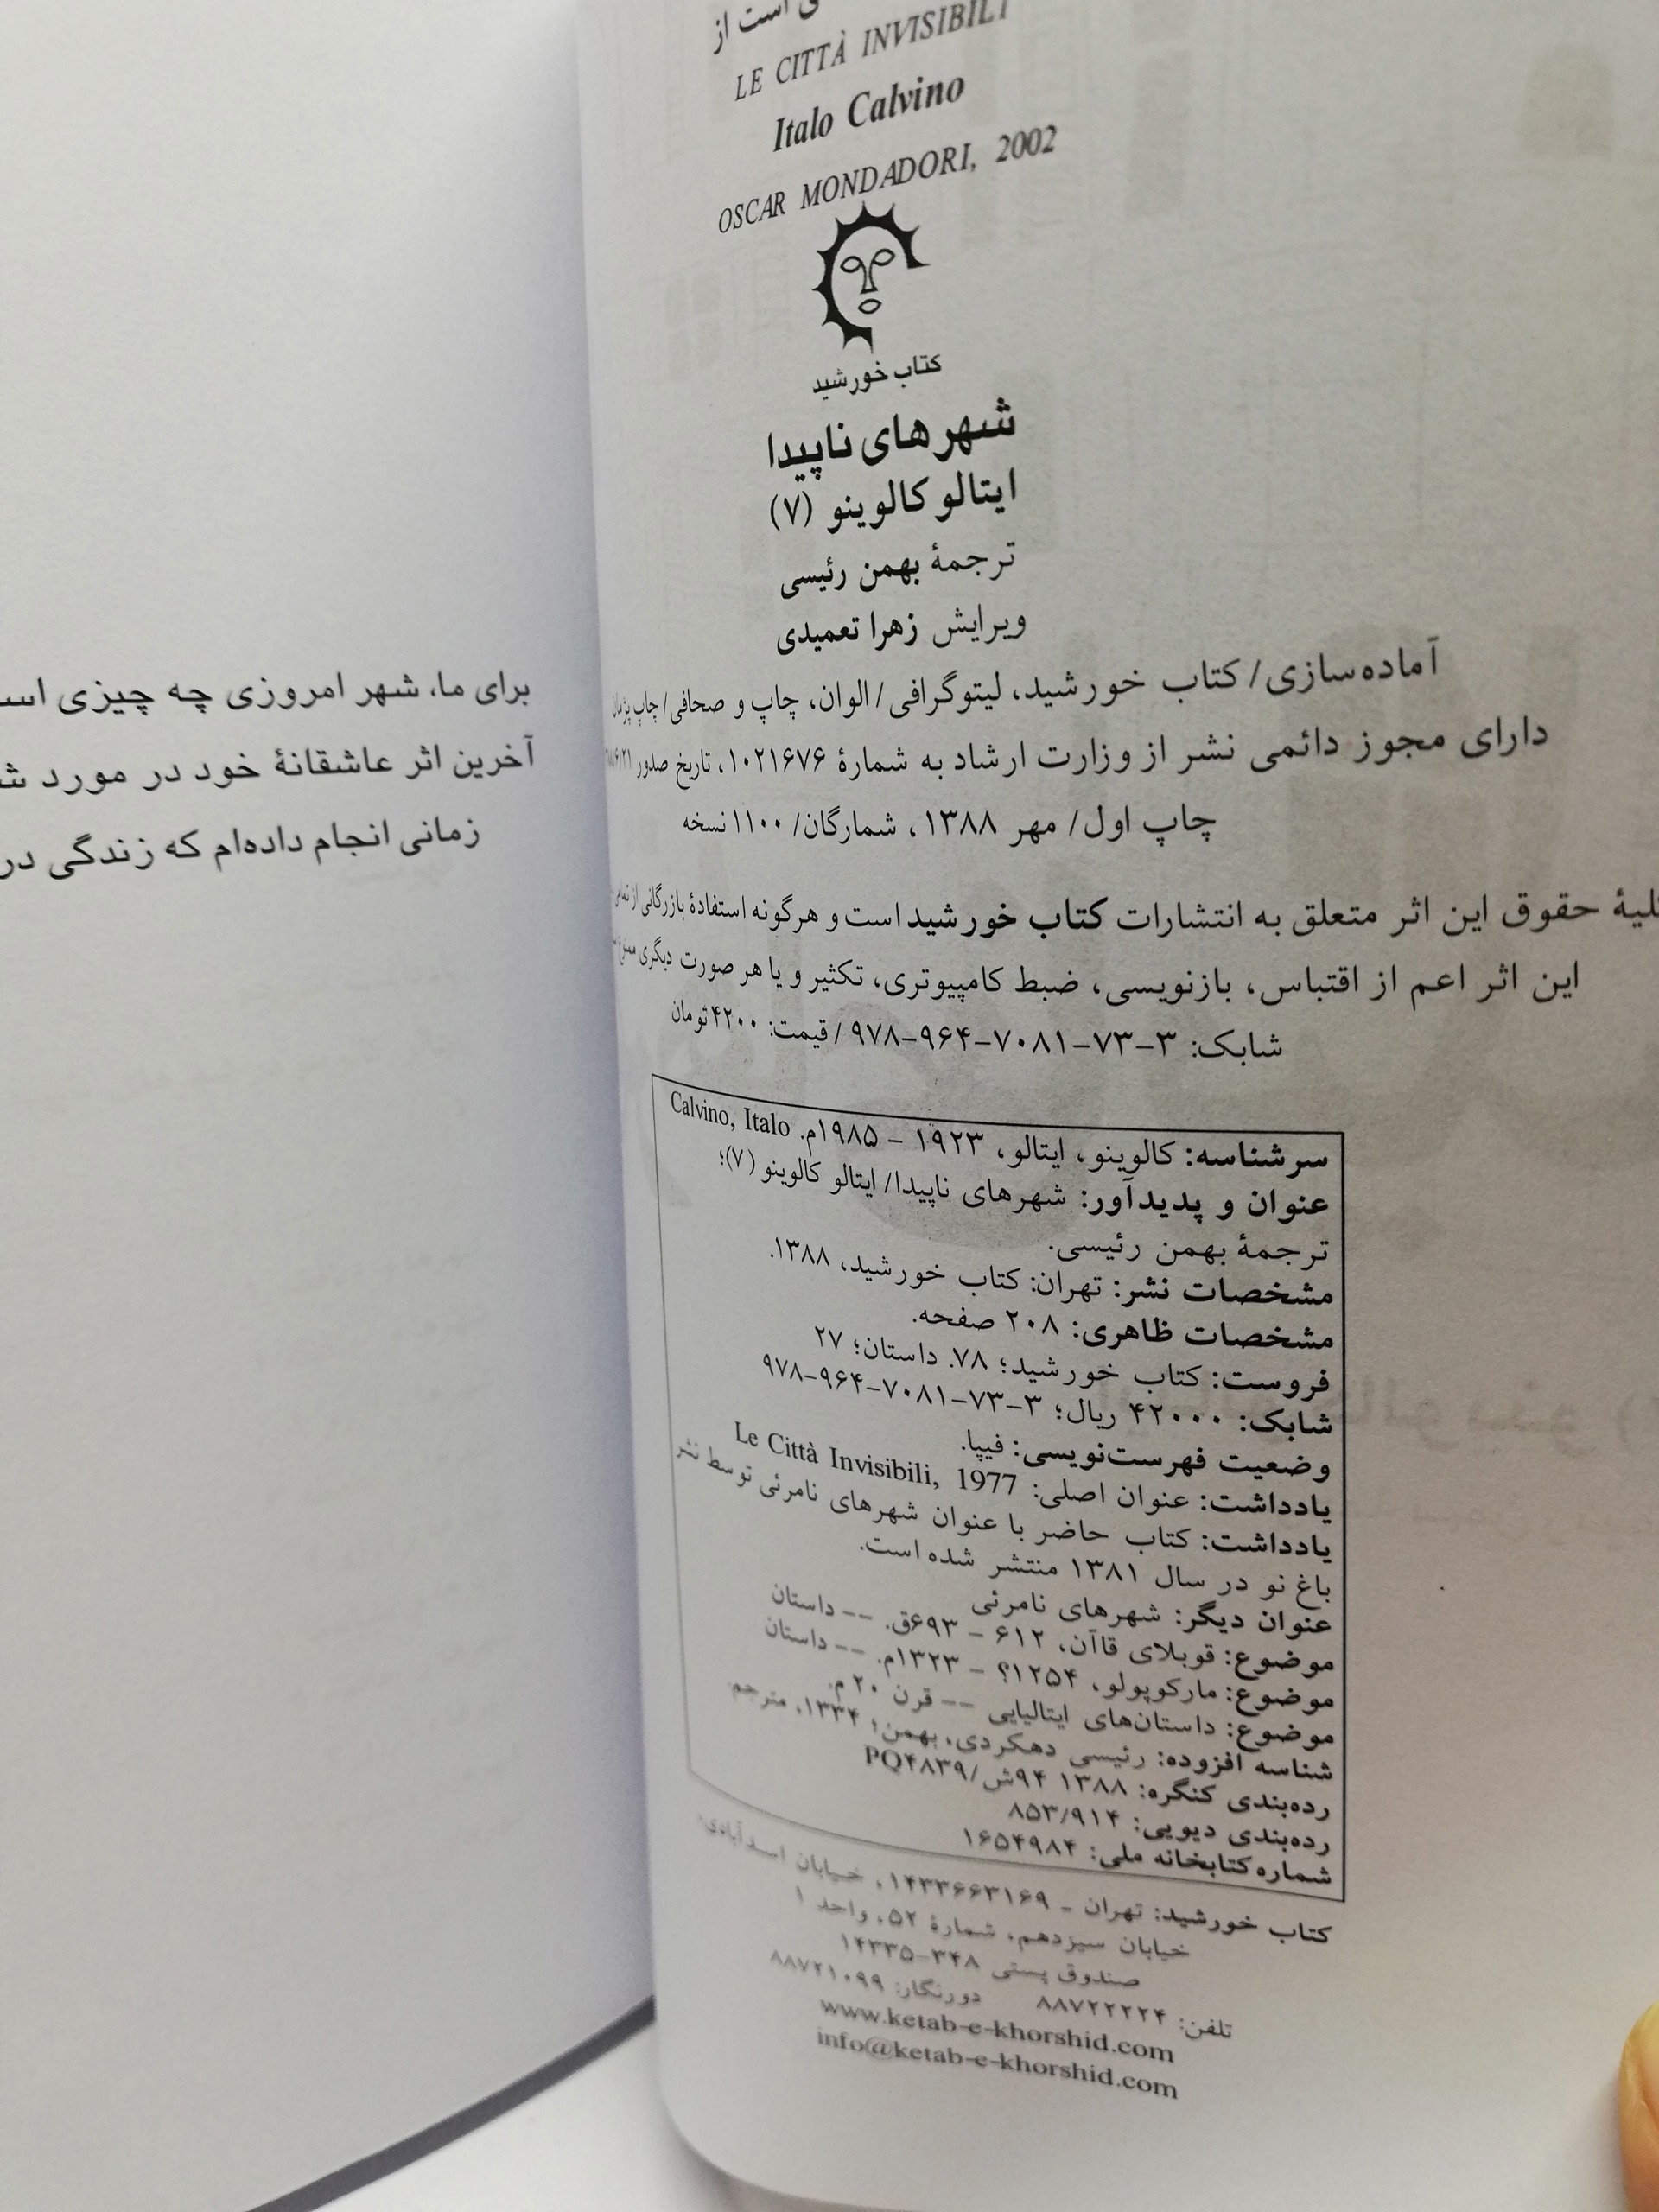 است از
LE CITTÀ INVISIBILI
Italo Calvino
OSCAR MONDADORI, 2002
کتاب خورشید
شهرهای ناپیدا
ایتالو کالوینو (۷)
ترجمهٔ بهمن رئیسی
ویرایش زهرا تعمیدی
آماده‌سازی/ کتاب خورشید، لیتوگرافی/ الوان، چاپ و صحافی/ چاپ پژمان
دارای مجوز دائمی نشر از وزارت ارشاد به شمارهٔ ۱۰۲۱۶۷۶، تاریخ صدور
چاپ اول/ مهر ۱۳۸۸، شمارگان/ ۱۱۰۰ نسخه
حقوق این اثر متعلق به انتشارات کتاب خورشید است و هرگونه استفادهٔ بازرگانی از
این اثر اعم از اقتباس، بازنویسی، ضبط کامپیوتری، تکثیر و یا هر صورت دیگری
شابک: ۳-۷۳-۷۰۸۱-۹۶۴-۹۷۸ / قیمت: ۴۲۰۰ تومان
سرشناسه: کالوینو، ایتالو، ۱۹۲۳ - ۱۹۸۵م. Calvino, Italo
عنوان و پدیدآور: شهرهای ناپیدا/ ایتالو کالوینو (۷)؛
ترجمهٔ بهمن رئیسی.
مشخصات نشر: تهران: کتاب خورشید، ۱۳۸۸.
مشخصات ظاهری: ۲۰۸ صفحه.
فروست: کتاب خورشید؛ ۷۸. داستان؛ ۲۷
شابک: ۴۲۰۰۰ ریال؛ ۳-۷۳-۷۰۸۱-۹۶۴-۹۷۸
وضعیت فهرست‌نویسی: فیپا.
یادداشت: عنوان اصلی: Le Città Invisibili, 1977
یادداشت: کتاب حاضر با عنوان شهرهای نامرئی توسط نشر
باغ نو در سال ۱۳۸۱ منتشر شده است.
عنوان دیگر: شهرهای نامرئی
موضوع: قوبلای قاآن، ۶۱۲ - ۶۹۳ق. -- داستان
موضوع: مارکوپولو، ۱۲۵۴؟ - ۱۳۲۳م. -- داستان
موضوع: داستان‌های ایتالیایی -- قرن ۲۰ م.
شناسه افزوده: رئیسی دهکردی، بهمن، ۱۳۳۴، مترجم
رده‌بندی کنگره: ۱۳۸۸ ۹۴ش/PQ۴۸۳۹
رده‌بندی دیویی: ۸۵۳/۹۱۴
شماره کتابخانه ملی: ۱۶۵۴۹۸۴
کتاب خورشید: تهران - ۱۴۳۳۶۶۳۱۶۹، خیابان اسدآبادی
خیابان سیزدهم، شمارهٔ ۵۲، واحد ۱
صندوق پستی ۳۴۸-۱۴۳۳۵
تلفن: ۸۸۷۲۲۲۲۴ دورنگار: ۸۸۷۲۱۰۹۹
www.ketab-e-khorshid.com
info@ketab-e-khorshid.com
برای ما، شهر امروزی چه چیزی
آخرین اثر عاشقانهٔ خود در مورد
زمانی انجام داده‌ام که زندگی در